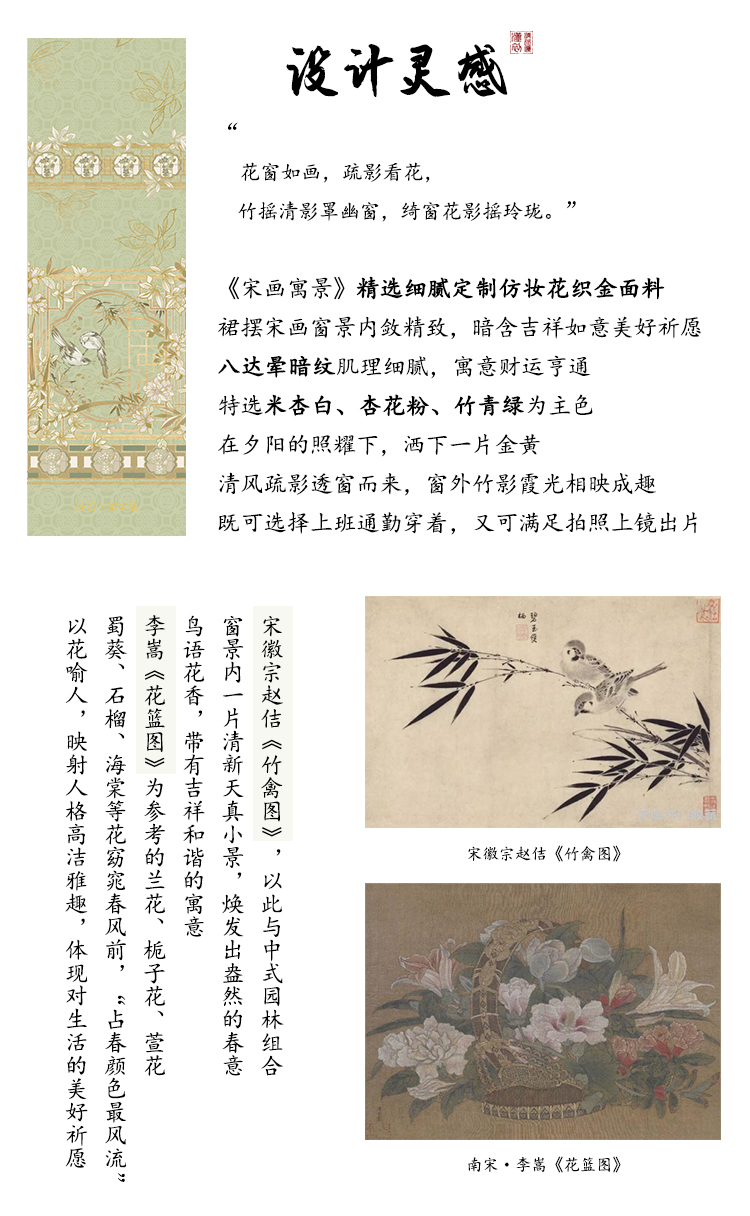 设计灵感
“
花窗如画，疏影看花，
竹摇清影罩幽窗，绮窗花影摇玲珑。”
《宋画寓景》精选细腻定制仿妆花织金面料
裙摆宋画窗景内敛精致，暗含吉祥如意美好祈愿
八达晕暗纹肌理细腻，寓意财运亨通
特选米杏白、杏花粉、竹青绿为主色
在夕阳的照耀下，洒下一片金黄
清风疏影透窗而来，窗外竹影霞光相映成趣
既可选择上班通勤穿着，又可满足拍照上镜出片
宋徽宗赵佶《竹禽图》，以此与中式园林组合
窗景内一片清新天真小景，焕发出盎然的春意
鸟语花香，带有吉祥和谐的寓意
李嵩《花篮图》为参考的兰花、栀子花、萱花
蜀葵、石榴、海棠等花窈窕春风前，“占春颜色最风流”
以花喻人，映射人格高洁雅趣，体现对生活的美好祈愿
宋徽宗赵佶《竹禽图》
南宋·李嵩《花篮图》